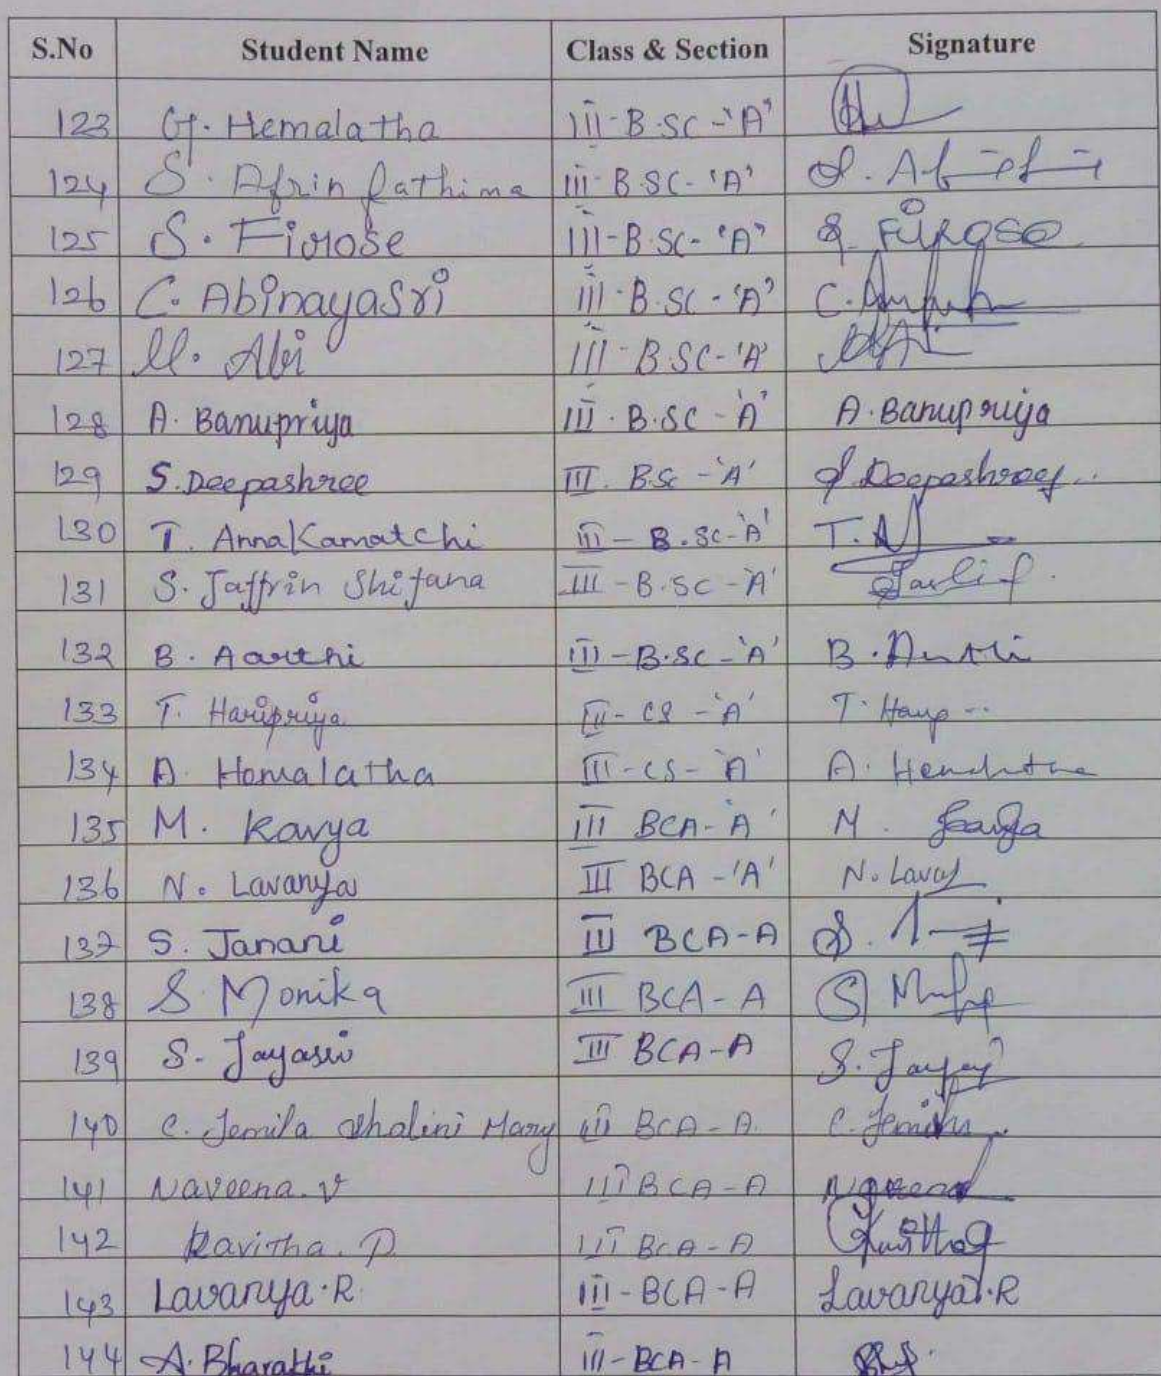 S.No Student Name Class & Section Signature
123 G. Hemalatha III-B.SC-'A'
124 S. Afrin fathima III-B.SC-'A'
125 S. Firose III-B.SC-'A' S. Firose
126 C. Abinayasri III-B.SC-'A' C.
127 M. Abi III-B.SC-'A'
128 A. Banupriya III.B.SC-'A' A.Banupriya
129 S.Deepashree III.BSc-'A' S.Deepashree
130 T. AnnaKamatchi III-B.SC-'A' T.A
131 S. Jaffrin Shifana III-B.SC-'A'
132 B. Aarthi III-B.SC-'A' B.
133 T. Haripriya III-CS-'A' T. Harip
134 A. Hemalatha III-CS-'A' A.
135 M. Kavya III BCA-'A' M. Kavya
136 N. Lavanya III BCA-'A' N. Lavay
137 S. Janani III BCA-A S.
138 S. Monika III BCA-A S
139 S. Jayasri III BCA-A S.
140 C. Jemila Shalini Mary III BCA-A. C.
141 Naveena.V III BCA-A
142 Kavitha.P III BCA-A
143 Lavanya.R. III-BCA-A Lavanya.R
144 A.Bharathi III-BCA-A